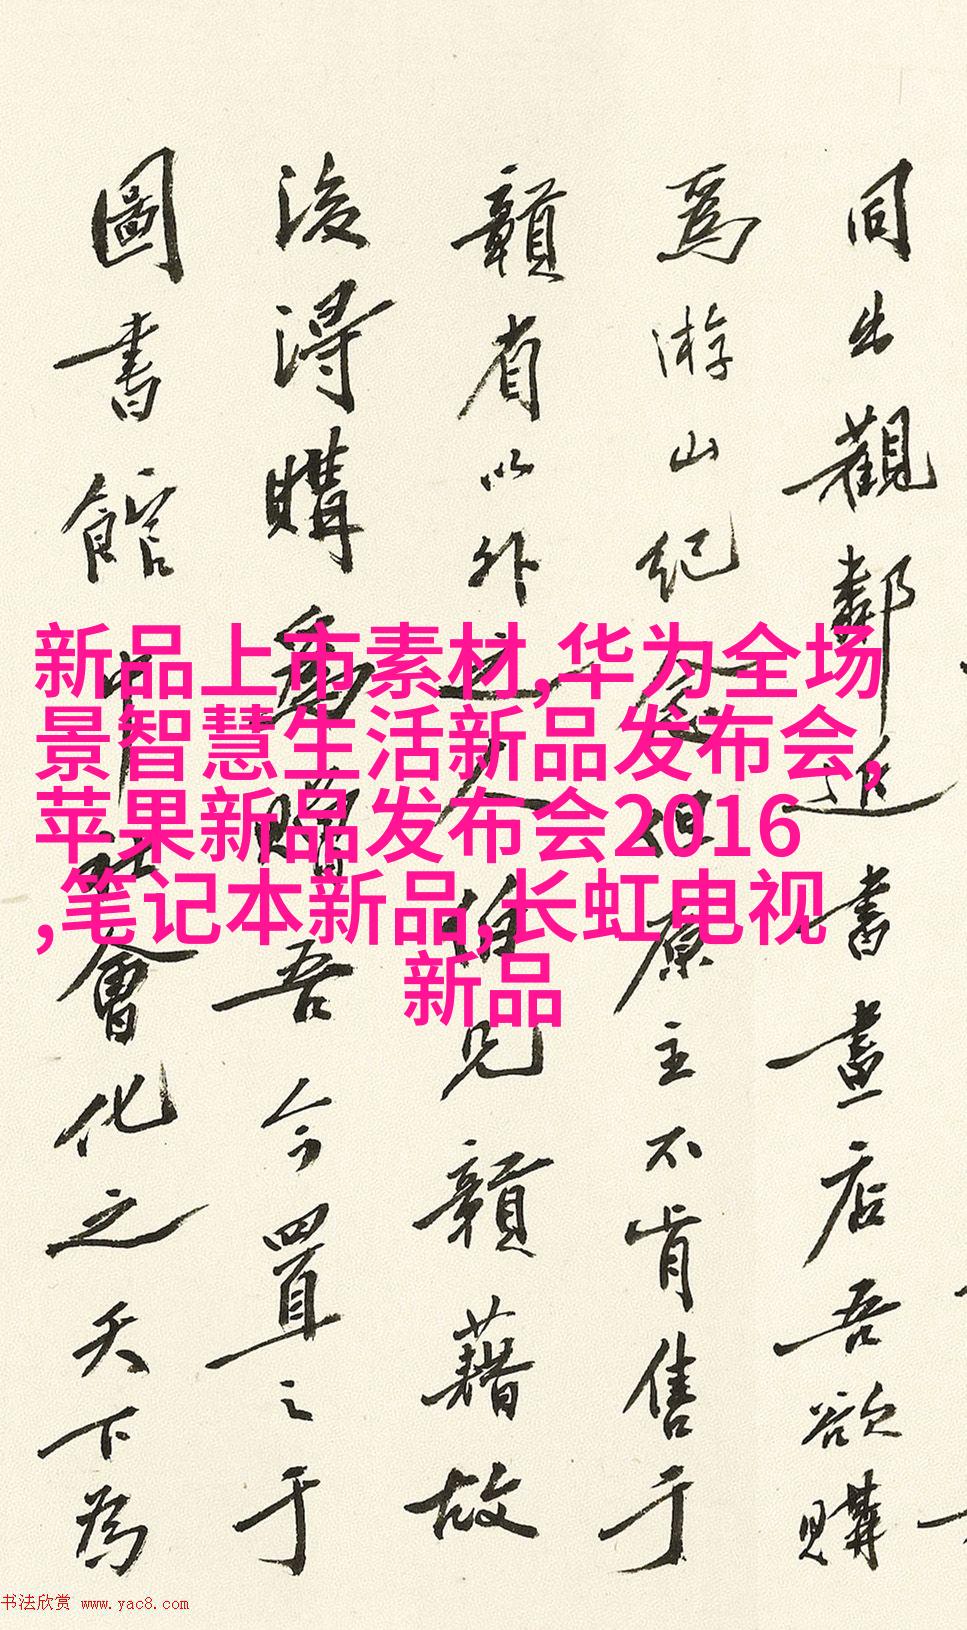 同出觀鄰近書畫店吾欲購
爲游山紀念但原主不肯售于
贛省以外之人見贛藉故
後得購為贈吾今置之于
圖書館中社會化之天下為
新品上市素材,华为全场
景智慧生活新品发布会,
苹果新品发布会2016
,笔记本新品,长虹电视
新品
书法欣赏 www.yac8.com